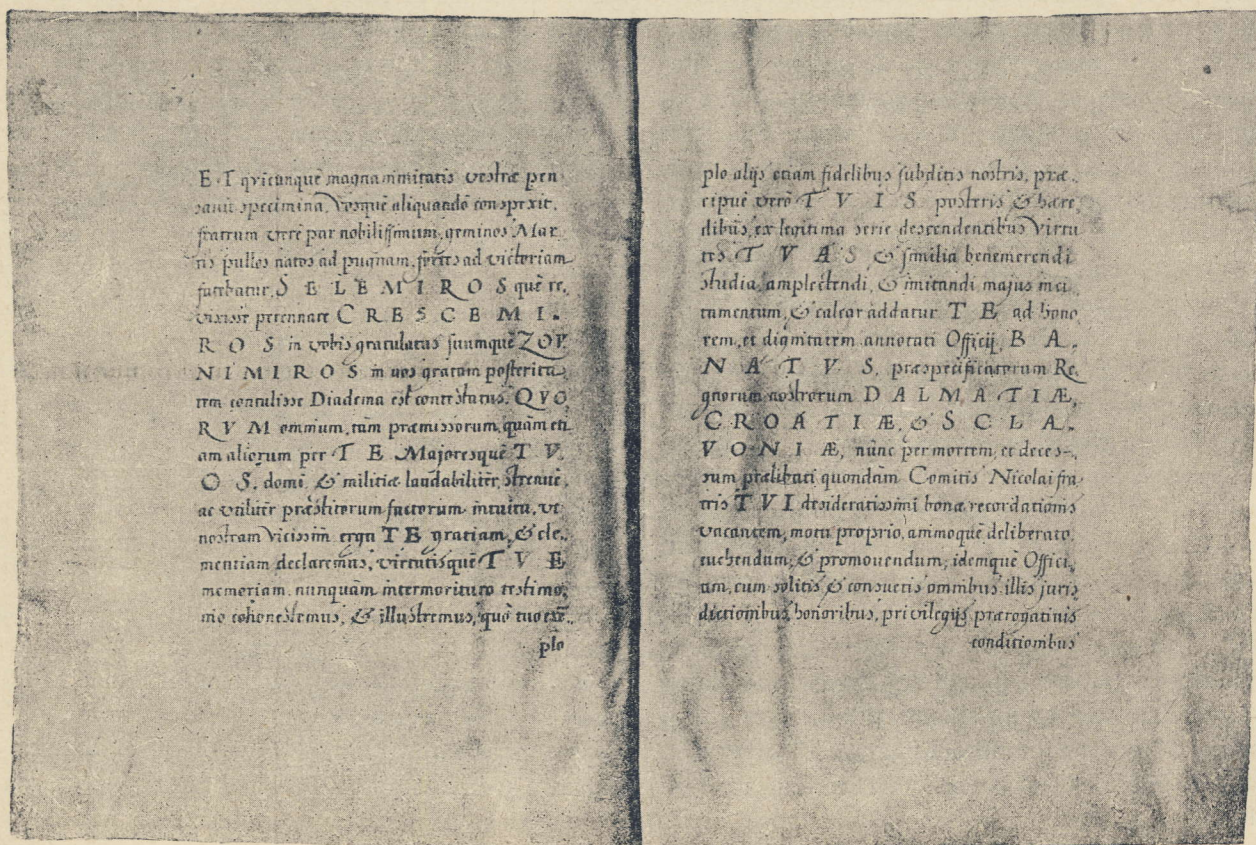 E T quicunquè magnanimitatis vestræ pen
savit specimina, Vosquè aliquandò conspexit,
fratrum verè par nobilissimum, geminos Mar
tis pullos natos ad pugnam, fortes ad victoriam
fatebatur, S E L E M I R O S què re,
vixisse perennare C R E S C E M I -
R O S in vobis gratulatus suumquè ZOP
N I M I R O S in vos gratam posterita,
tem contulisse Diadema est contestatus. QVO,
R V M omnium, tùm præmissorum, quàm eti
am aliorum per T E Majoresquè T V
O S, domi, & militiæ laudabilitèr, strenuè,
ac utilitèr præstitorum factorum intuitu, ut
nostram Vicissim ergà T E gratiam, & cle,
mentiam declaremus, virtutisquè T V E
memoriam nunquàm intermorituro testimo,
nio cohonestemus, & illustremus, quò tuo exē
plo
plo alijs etiam fidelibus subditis nostris, præ,
cipuè verò T V I S posteris & hære,
dibus, ex legitima serie descendentibus Virtu
tes T V A S & similia benemerendi
studia, amplectendi, & imitandi majus inci
tamentum, & calcar addatur T E ad hono
rem, et dignitatem annotati Officij B A -
N A T V S, præspecificatorum Re
gnorum nostrorum D A L M A T I Æ,
C R O A T I Æ, & S C L A -
V O N I Æ, nunc per mortem, et deces-,
sum prælibati quondàm Comitis Nicolai fra
tris T V I desideratissimi bonæ recordationis
vacantem, motu proprio, animoquè deliberato,
evehendum, & promovendum, idemquè Offici,
um, cum solitis & consuetis omnibus illis juris
dictionibus, honoribus, privilegijs prærogativis
conditionibus